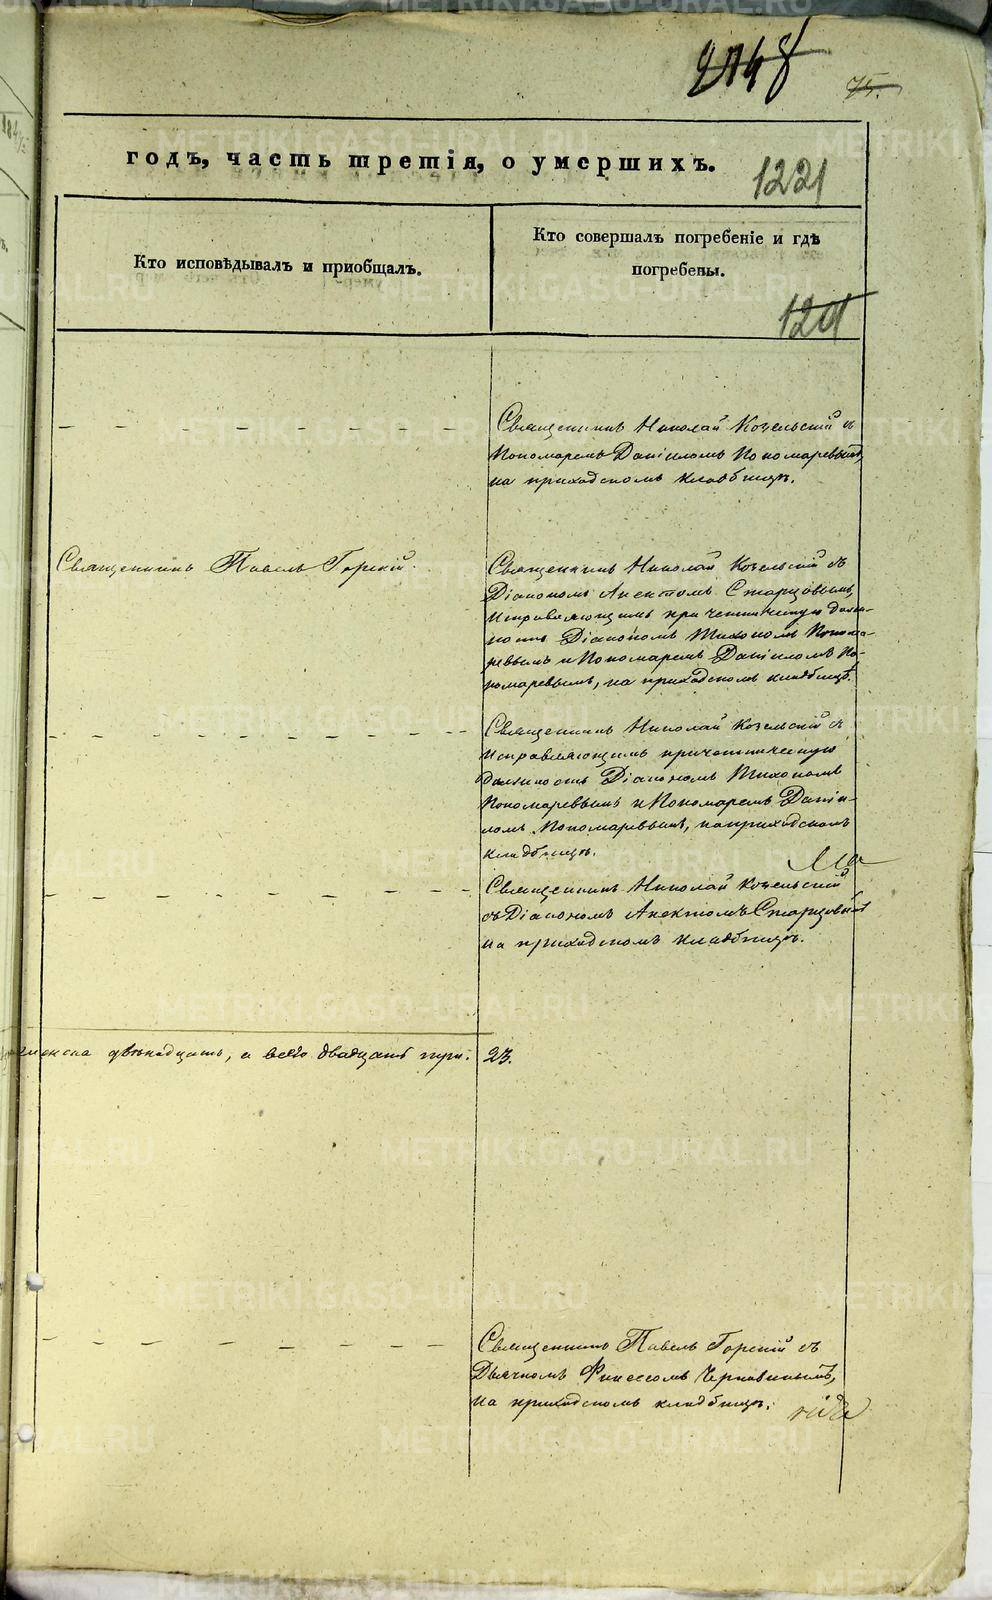 75.
годъ, часть третія, о умершихъ.
1221
Кто исповѣдывалъ и приобщалъ.
Кто совершалъ погребеніе и гдѣ
погребены.
Священникъ Николай Козельскій съ
Пономаремъ Даніиломъ Пономаревымъ,
на приходскомъ кладбищѣ.
Священникъ Павелъ Горскій.
Священникъ Николай Козельскій съ
Діакономъ Анектомъ Старцовымъ,
исправляющимъ причетническую долж-
ность Діакономъ Тихономъ Понома-
ревымъ и Пономаремъ Даніиломъ По-
номаревымъ, на приходскомъ кладбищѣ.
Священникъ Николай Козельскій съ
исправляющимъ причетническую
должность Діакономъ Тихономъ
Пономаревымъ и Пономаремъ Даніи-
ломъ Пономаревымъ, на приходскомъ
кладбищѣ.
Священникъ Николай Козельскій
съ Діакономъ Анектомъ Старцовымъ
на приходскомъ кладбищѣ.
женска двѣнадцать, а всего двадцать три. 23.
Священникъ Павелъ Горскій съ
Дьячкомъ Черновинымъ,
на приходскомъ кладбищѣ.
METRIKI.GASO-URAL.RU